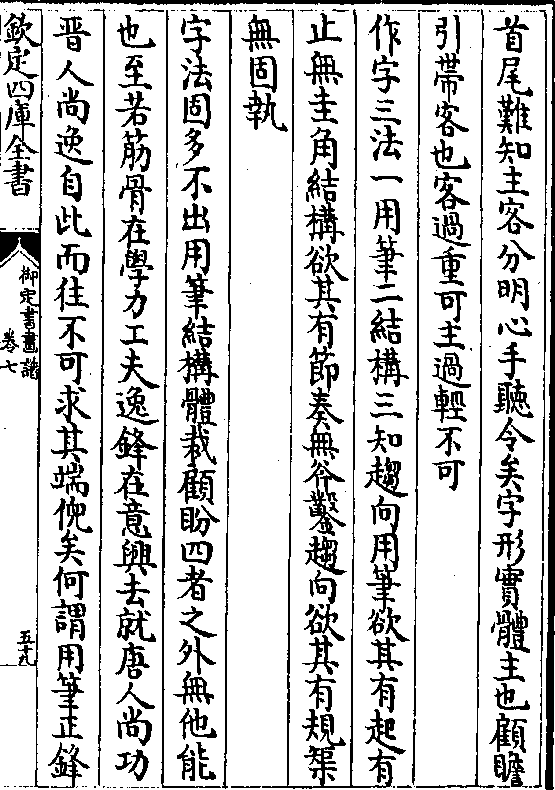 首尾難知主客分明心手聽令矣字形實體主也顧瞻
引帶客也客過重可主過輕不可
作字三法一用筆二結構三知趨向用筆欲其有起有
止無圭角結構欲其有節奏無斧鑿趨向欲其有規榘
無固執
字法固多不出用筆結構體裁顧盼四者之外無他能
也至若筋骨在學力工夫逸鋒在意興去就唐人尚功
晉人尚逸自此而往不可求其端倪矣何謂用筆正鋒
欽定四庫全書
御定書畫譜
卷七
五十九